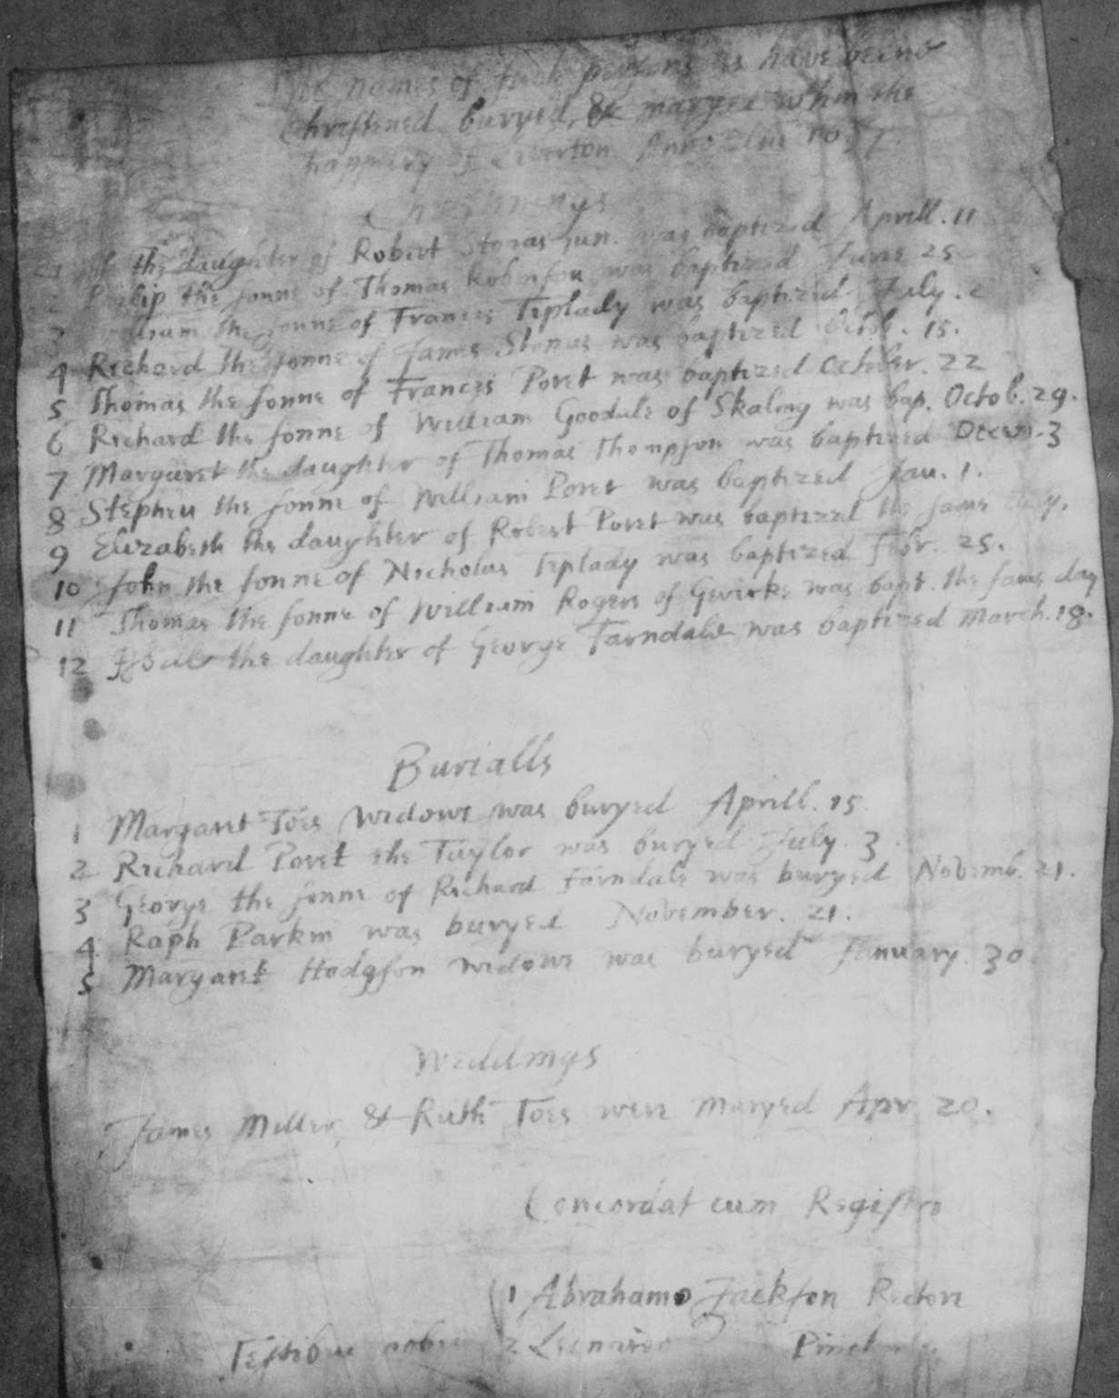 names of such persons as have beene
Christened buryed, & maryed within the
of Anno
1 the daughter of Robert Storas jun. was baptized Aprill. 11
2 Philip the sonne of Thomas Robinson was baptized June 25
3 the sonne of Francis Teplady was baptized July.
4 Richard the sonne of James Stonas was baptized Octob. 15.
5 Thomas the sonne of Francis Poret was baptized October. 22
6 Richard the sonne of William Goodale of Skaling was bap. Octob. 29.
7 Margaret the daughter of Thomas Thompson was baptized Decem. 3
8 Stephen the sonne of William Poret was baptized Jan. 1.
9 Elizabeth the daughter of Robert Poret was baptized the same day.
10 John the sonne of Nicholas Teplady was baptized Febr. 25.
11 Thomas the sonne of William Rogers of Gerirke was bapt. the same day
12 the daughter of George Farndale was baptized March. 18.
Burialls
1 Margaret Toes widowe was buryed Aprill. 15
2 Richard Poret the Taylor was buryed July. 3.
3 George the sonne of Richard Farndale was buryed Novemb. 21.
4 Raph Parkin was buryed November. 21.
5 Margaret Hodgson widowe was buryed January. 30
Weddings
James Miller & Ruth Toes were maryed Apr 20.
Concordat cum Registro
1 Abrahamo Jackson Rectore
Testibus 2